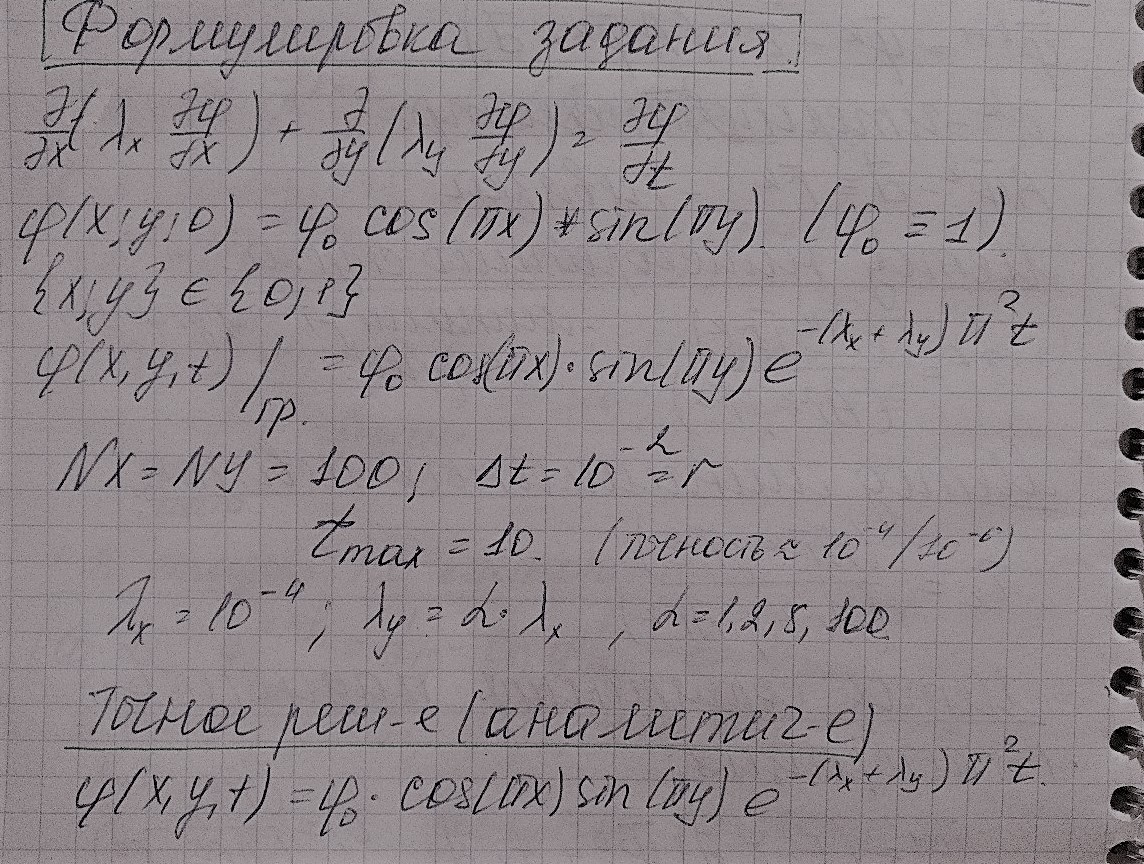 Формулировка задания.
∂/∂x(λx ∂φ/∂x) + ∂/∂y(λy ∂φ/∂y) = ∂φ/∂t
φ(x,y,0) = φ₀ cos(πx)*sin(πy). (φ₀ = 1).
{x,y} ∈ {0,1}
φ(x,y,t)/гр. = φ₀ cos(πx)·sin(πy) e^-(λx+λy)π²t
Nx = Ny = 100; Δt = 10⁻² = r
tmax = 10. (точность ≈ 10⁻⁴/10⁻⁶)
λx = 10⁻⁴; λy = α·λx, α = 1,2,5,100
Точное реш-е (аналитич-е)
φ(x,y,t) = φ₀· cos(πx) sin(πy) e^-(λx+λy)π²t.